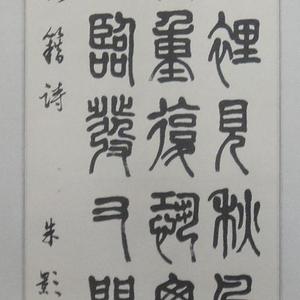 裡見秋
重復恐
臨發又開
籍诗 朱影